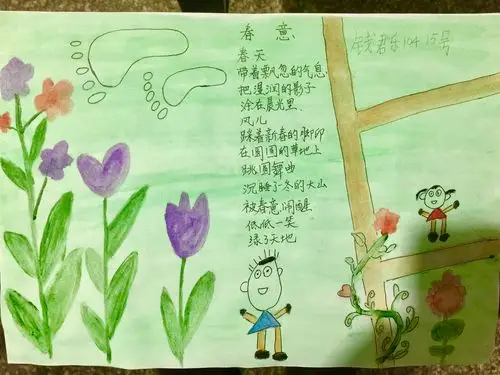 春意
钱君乐 104 15号
春天
带着飘忽的气息
把湿润的影子
涂在晨光里
风儿
踩着新春的脚印
在圆圆的草地上
跳圆舞曲
沉睡了冬的大山
被春意闹醒
低低一笑
绿了天地